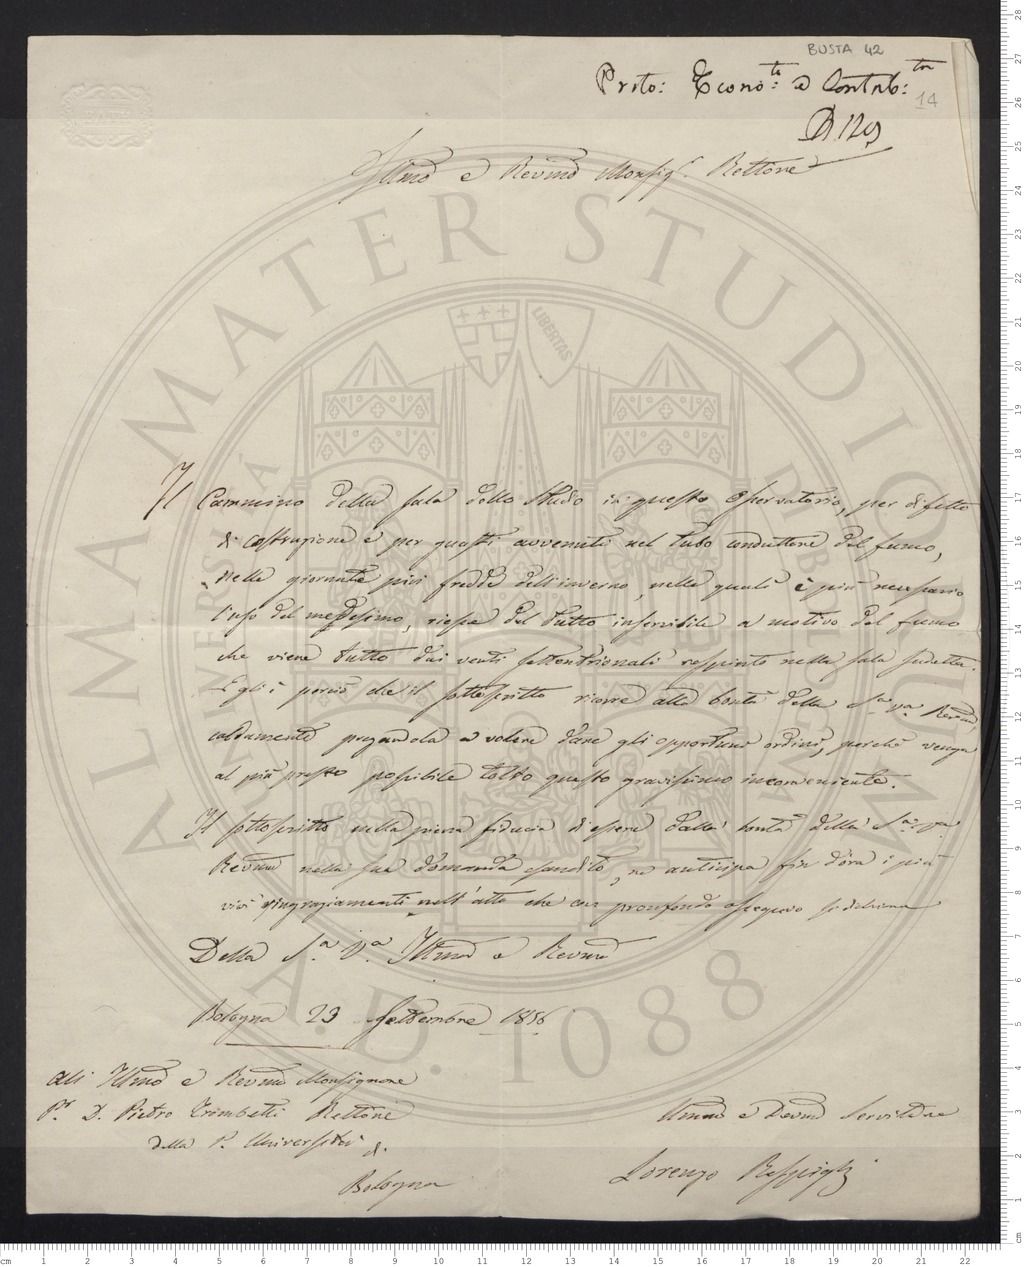 BUSTA 42
Proto: Econo:te e Contab:
14
Illmo e Revmo Monsigr. Rettore
Il Cammino della sala dello Studio in questo Osservatorio, per difetto
di costruzione e per guasti avvenuti nel tubo conduttore del fumo,
nelle giornate più fredde dell'inverno, nelle quali è più necessario
l'uso del medesimo, riesce del tutto inservibile a motivo del fumo
che viene tutto dai venti settentrionali respinto nella sala sudetta.
Egli è perciò che il sottoscritto ricorre alla bontà della Sa. Va. Revma,
caldamente pregandola a volere dare gli opportuni ordini, perchè venga
al più presto possibile tolto questo gravissimo inconveniente.
Il sottoscritto nella piena fiducia di essere dalla bontà della Sa. Va.
Revma nella sua domanda esaudito, ne anticipa fin d'ora i più
vivi ringraziamenti nell'atto che con profondo ossequio si dichiara
Della Sa. Va. Illma e Revma
Bologna 23 Settembre 1856
All' Illmo e Revmo Monsignore
Pr. D. Pietro Trombetti Rettore
della P. Università di
Bologna
Umo e Devmo Servitore
Lorenzo Respighi
ALMA MATER STUDIORUM
UNIVERSITÀ DI BOLOGNA
LIBERTAS
A.D. 1088